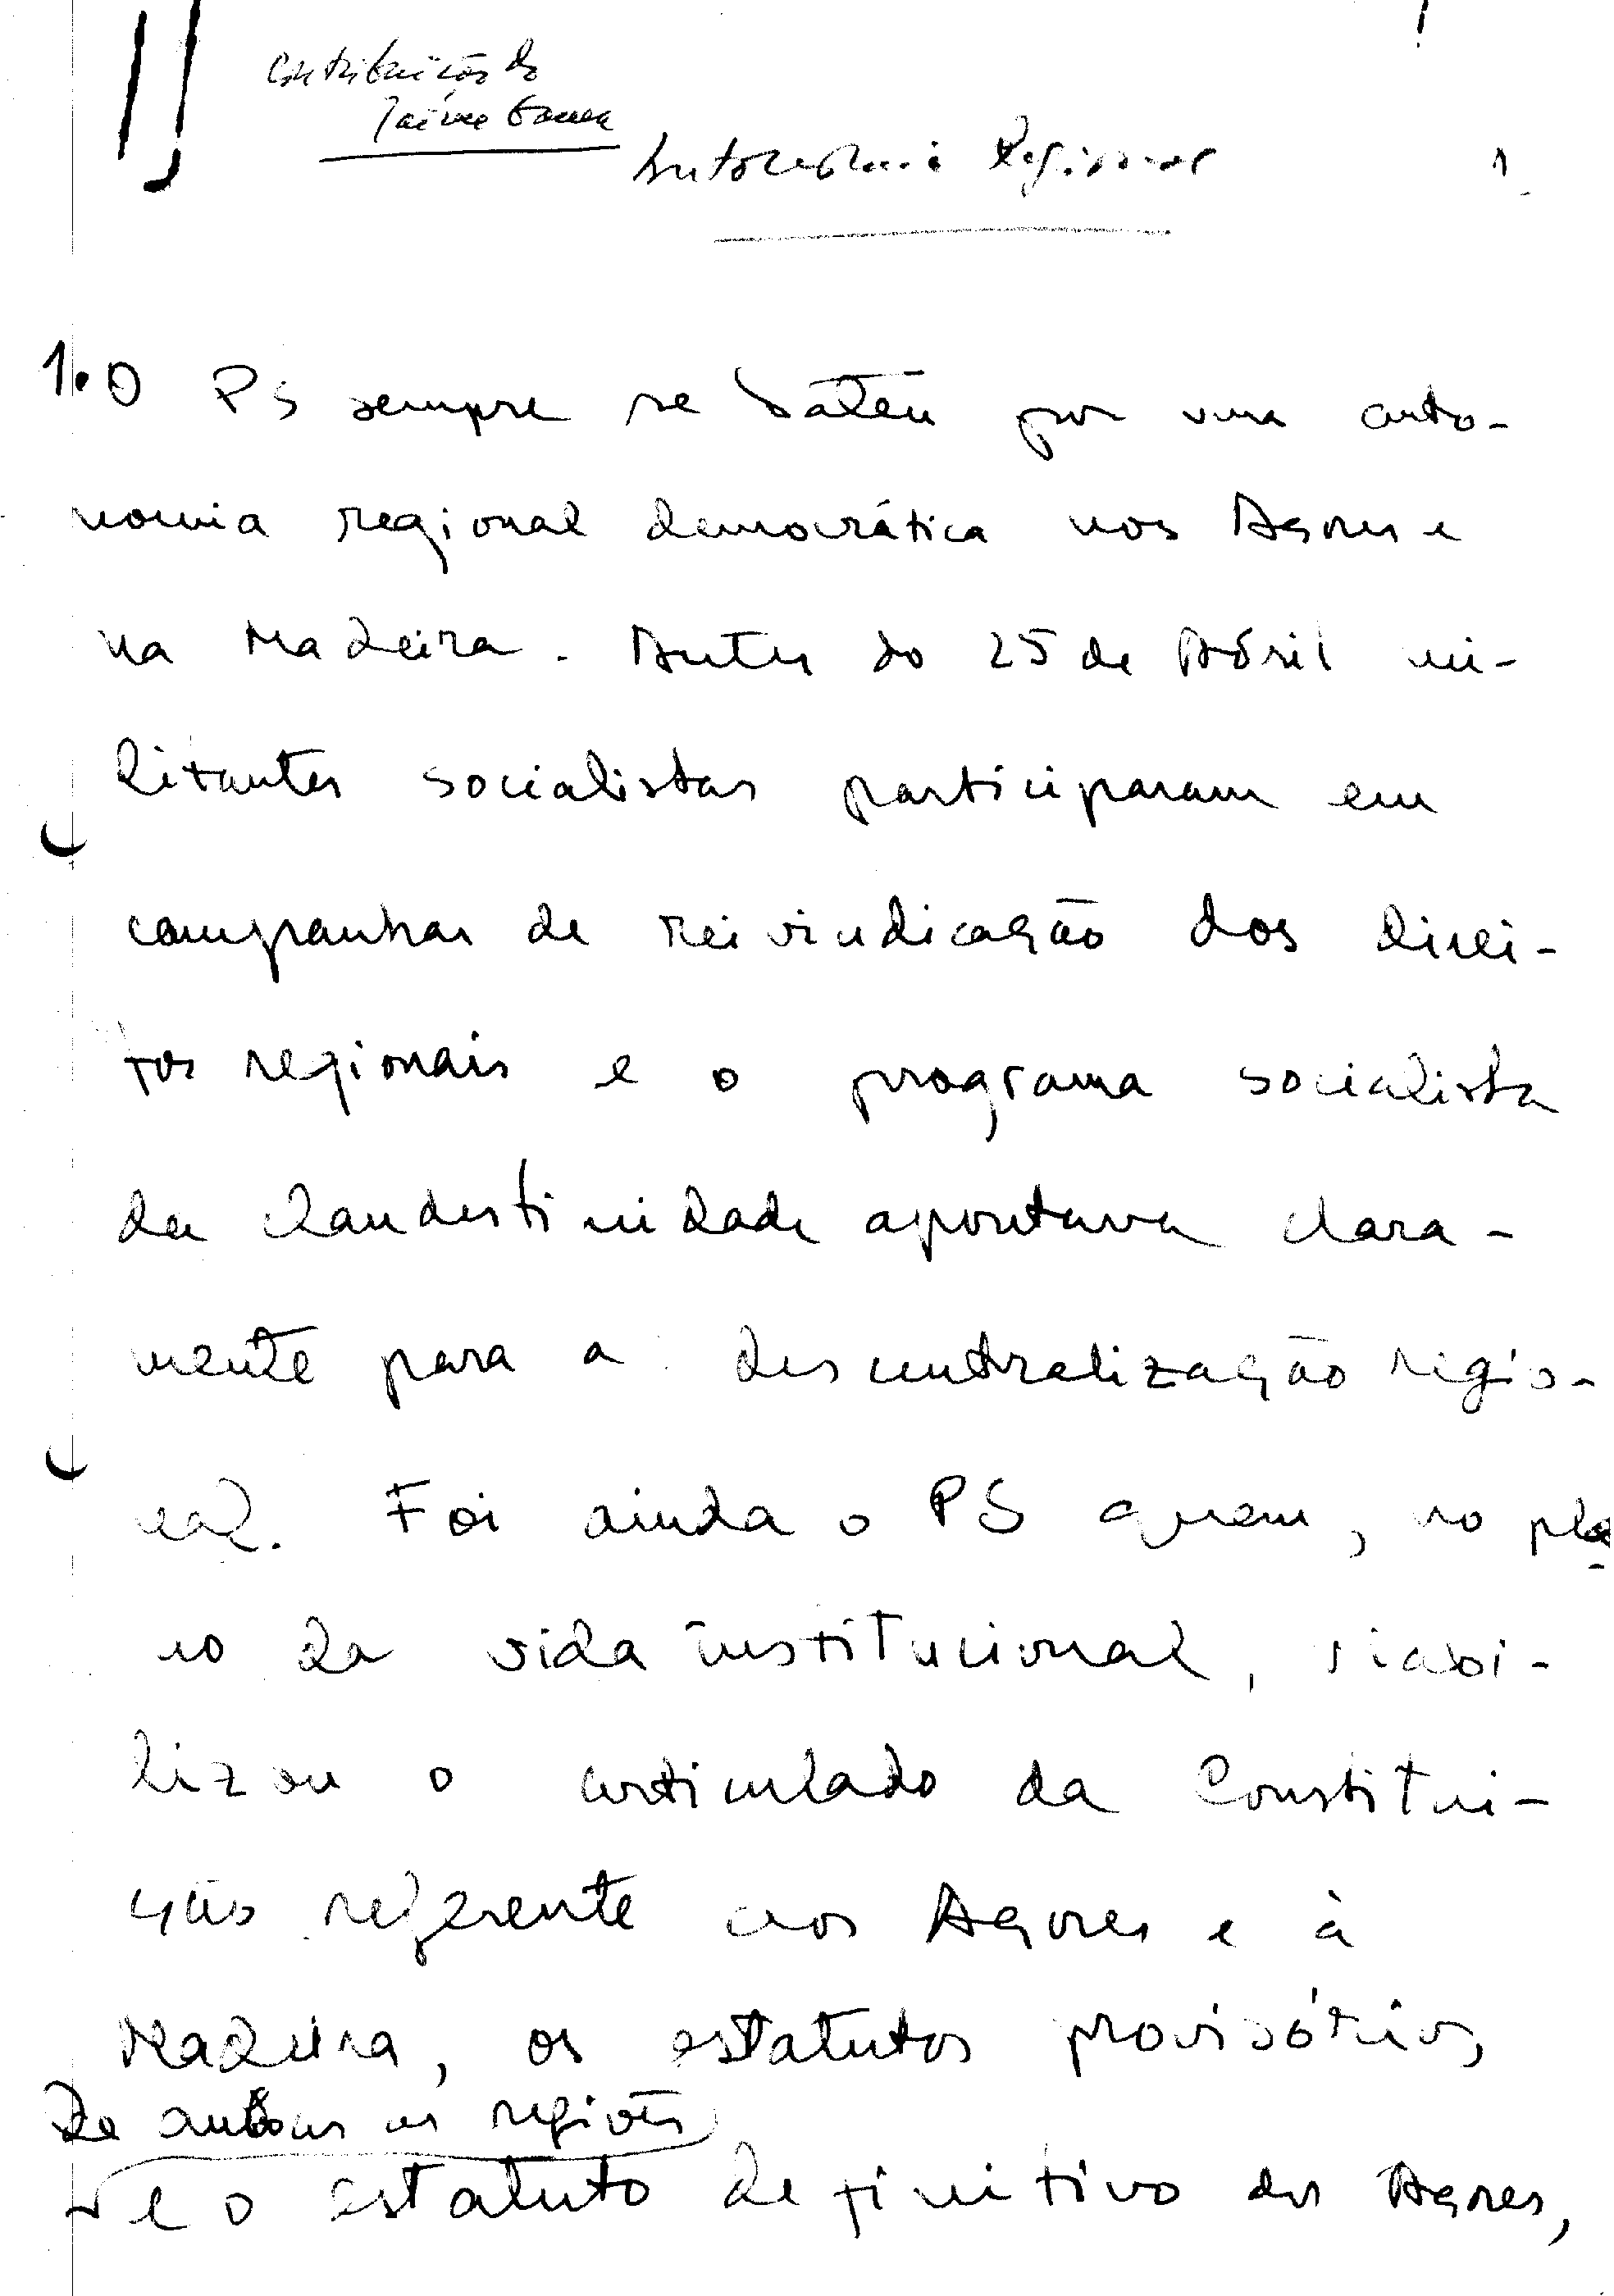 Contribuição do
Jaime Gama
Autonomia Regional
1
1. O PS sempre se bateu por uma auto-
nomia regional democrática nos Açores e
na Madeira. Antes do 25 de Abril mi-
litantes socialistas participaram em
campanhas de reivindicação dos direi-
tos regionais e o programa socialista
da clandestinidade apontava clara-
mente para a descentralização regio-
nal. Foi ainda o PS quem, no pla-
no da vida institucional, viabi-
lizou o articulado da Constitui-
ção referente aos Açores e à
Madeira, os estatutos provisórios,
de ambas as regiões
e o estatuto definitivo dos Açores,